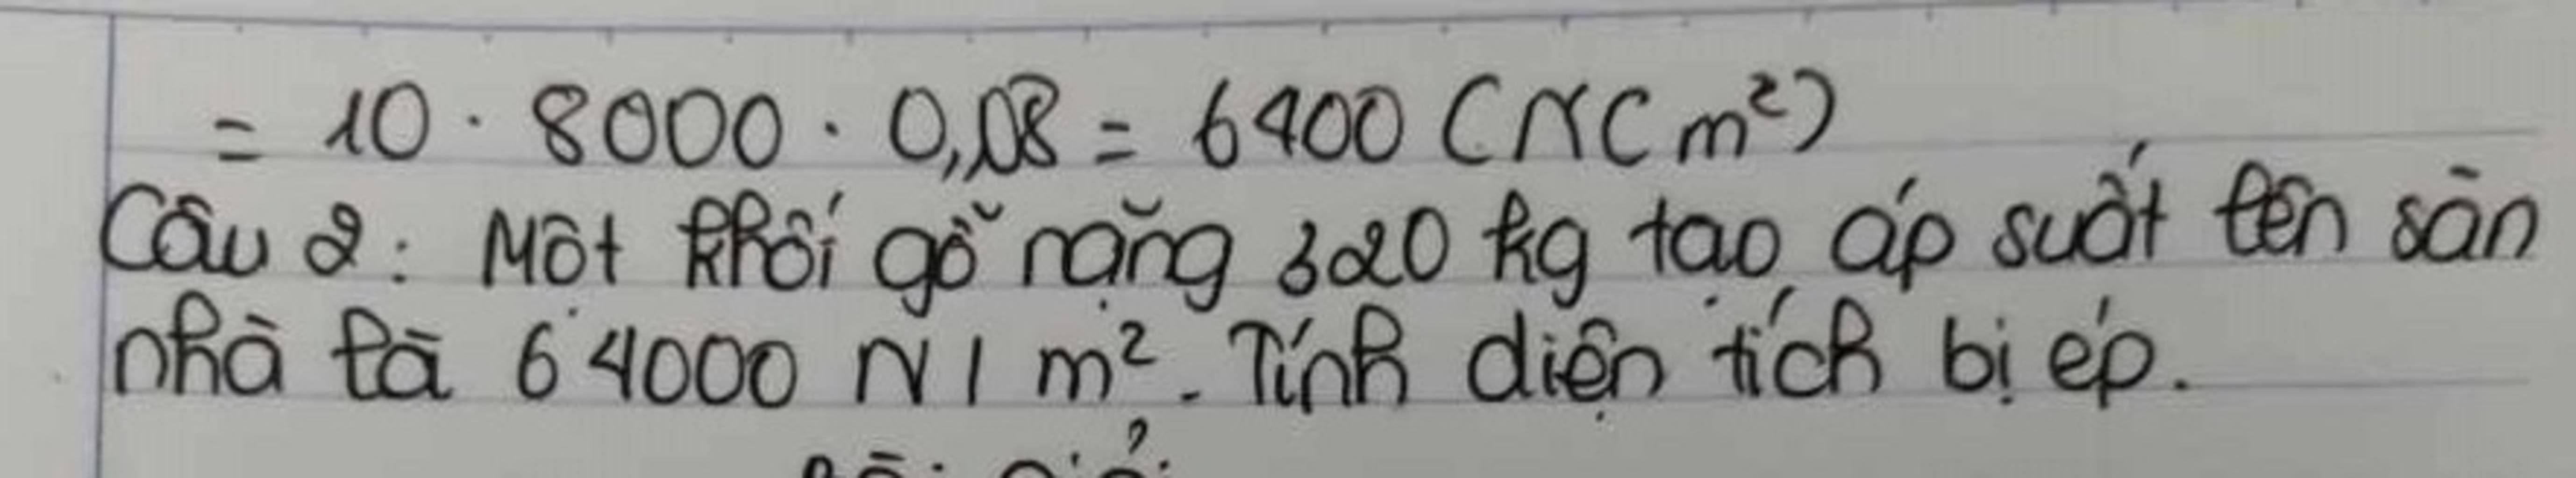 = 10 . 8000 . 0,08 = 6400 (N( m²)
Câu 2: Một khối gỗ nặng 320 kg tạo áp suất lên sàn
nhà là 64000 N/ m². Tính diện tích bị ép.
Bài giải